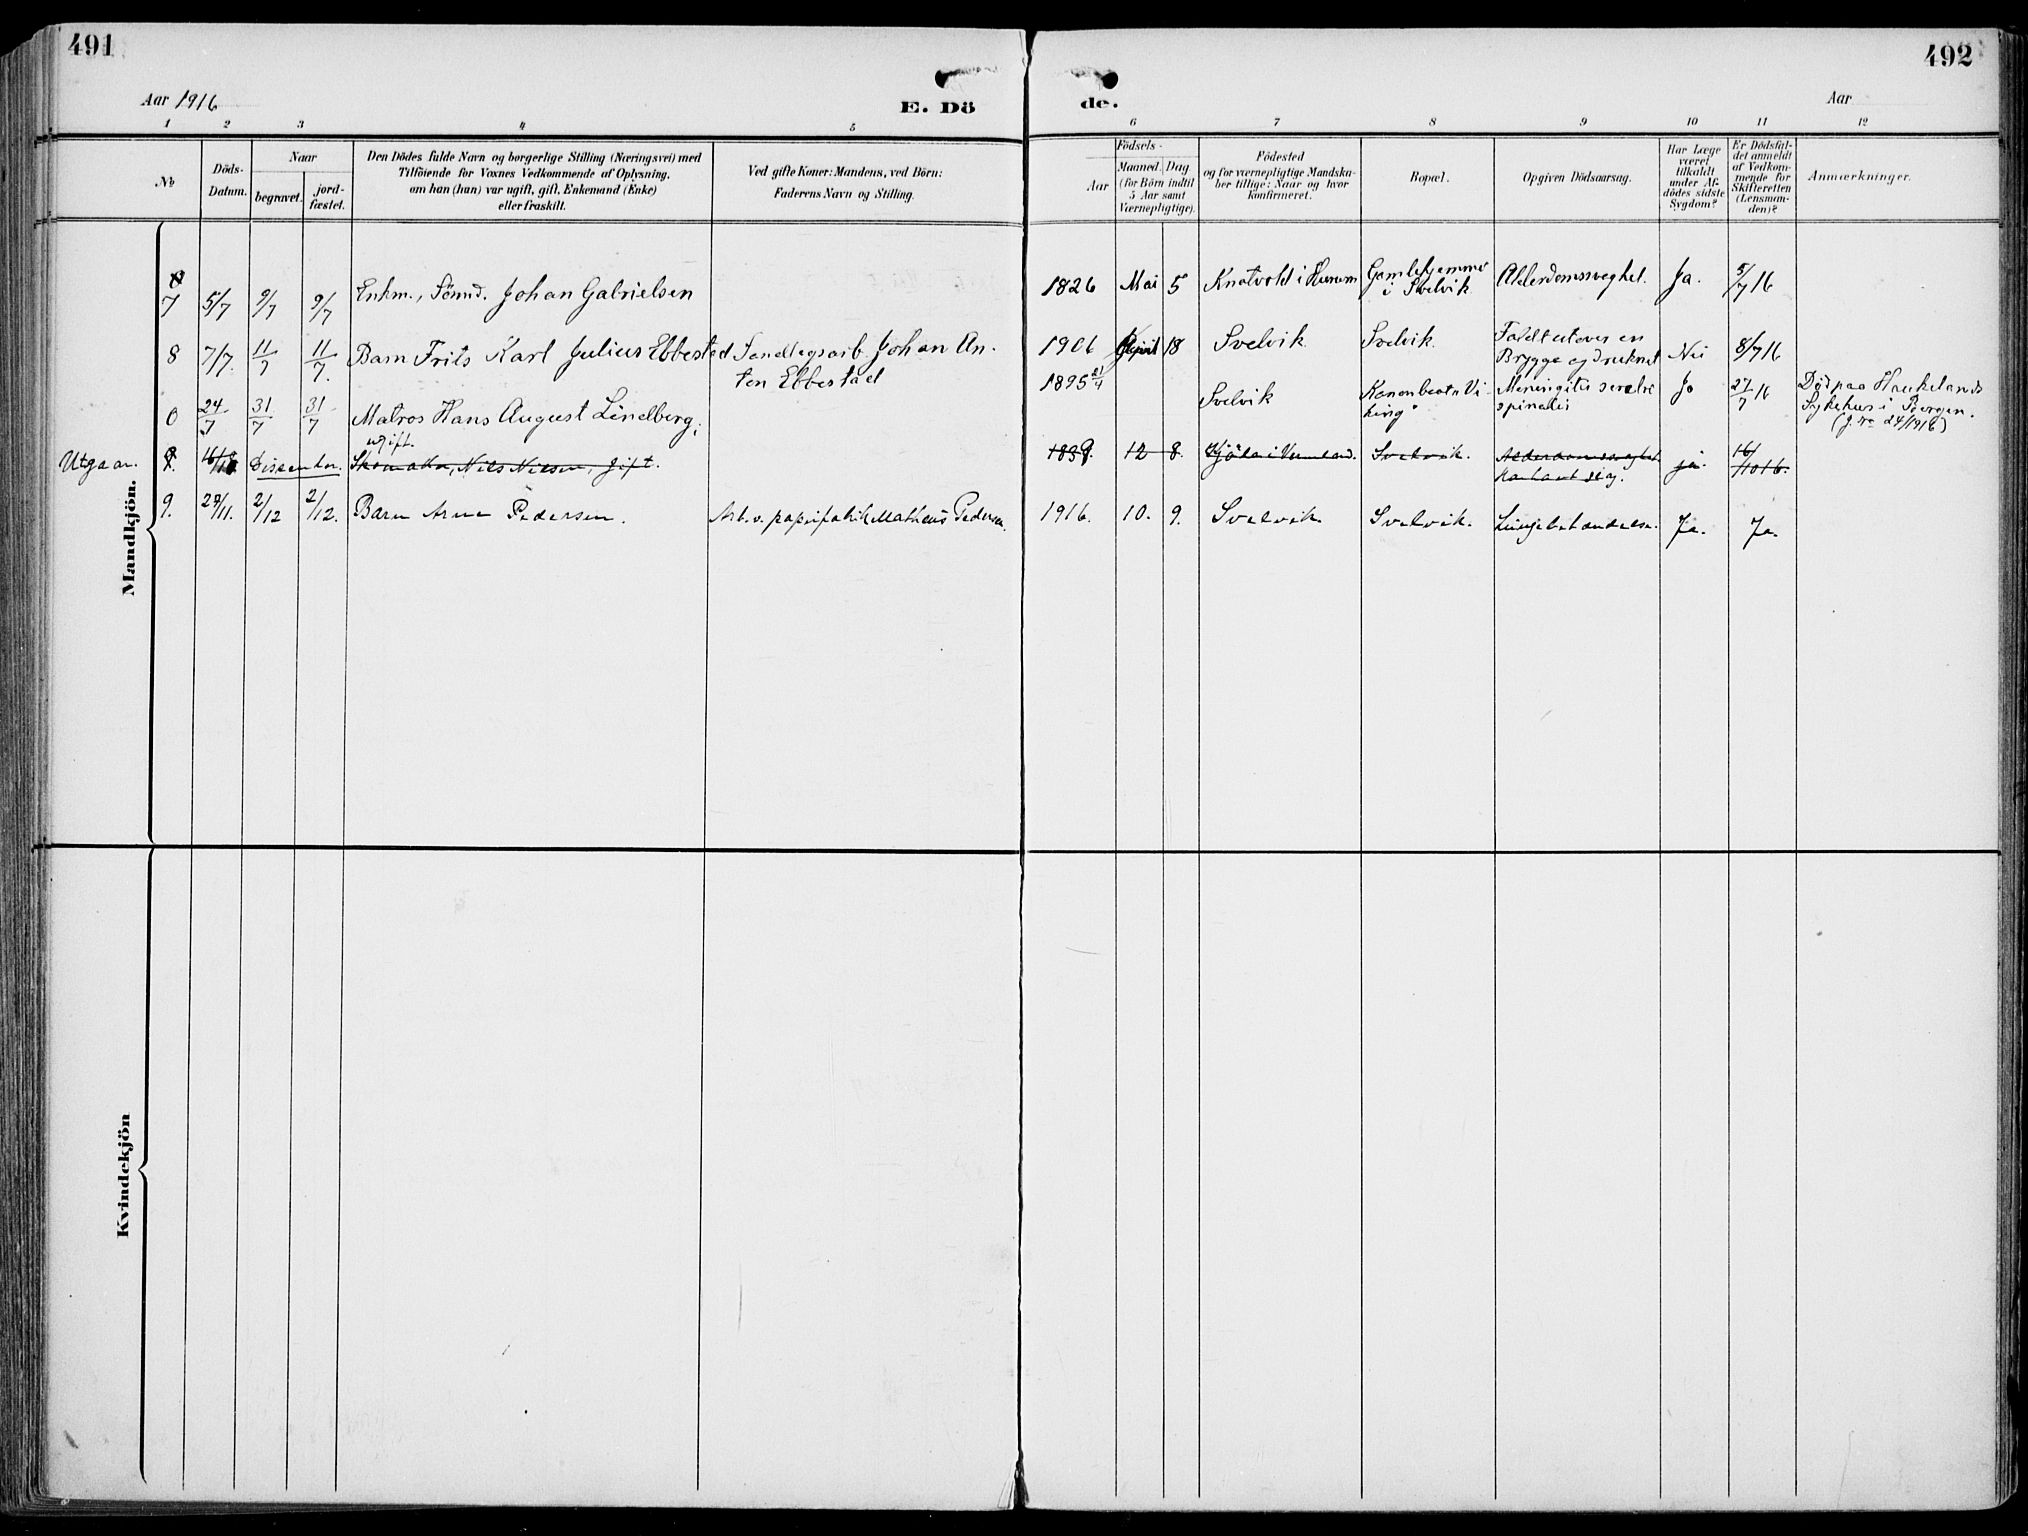 491
492
Aar 1916
E. Dö
de.
Aar
1 2 3 4 5 6 7 8 9 10 11 12
No
Döds-
Datum.
Naar
begravet.
jord-
fæstet.
Den Dödes fulde Navn og borgerlige Stilling (Næringsvei) med
Tilföiende for Voxnes Vedkommende af Oplysning,
om han (hun) var ugift, gift, Enkemand (Enke)
eller fraskilt.
Ved gifte Koner: Mandens, ved Börn:
Faderens Navn og Stilling.
Födsels-
Aar
Maaned.
Dag
(for Börn indtil
5 Aar samt
Værnepligtige).
Födested
og for værnepligtige Mandska-
ber tillige: Naar og hvor
konfirmeret.
Bopæl.
Opgiven Dödsaarsag.
Har Læge
været
tilkaldt
under Af-
dödes sidste
Sygdom?
Er Dödsfal-
det anmeldt
af Vedkom-
mende for
Skifteretten
(Lensman-
den)?
Anmærkninger.
Mandkjön.
7 5/7 9/7 9/7 Enkm., Tömd. Johan Gabrielsen 1826 Mai 5 Knatvold i Hurum Gamlehjemme Alderdomssvaghet. Ja. 5/7 16
i Svelvik
8 7/7. 11/7 11/7. Barn Frits Karl Julius Ebbested Johan An- 1906 April 18 Svelvik Svelvik. Faldt utover en Nei 8/7 16
ton Ebbestad Brygge og druknet
24/7 31/7 31/7 Matros Hans August Lindberg, 1895 21/4 Svelvik Kanonbaat "Vi- Meningitis cerebro Ja 27/7 16 Död paa Haukelands
ugift. king" spinalis Sykehus i Bergen.
(J. No 24/1916)
Utgaar. 16/10 Dissenter. Skomaker, Nils Nilsen, gift. 1839. 12 8. i Vermland. Svelvik. Alderdomssvaghet ja. 16/10 16.
9. 27/11. 2/12 2/12. Barn Arne Pedersen. Arb. v. papirfabrik Matheus Pedersen. 1916. 10. 9. Svelvik. Svelvik. Lungebetændelse. Ja. Ja.
Kvindekjön